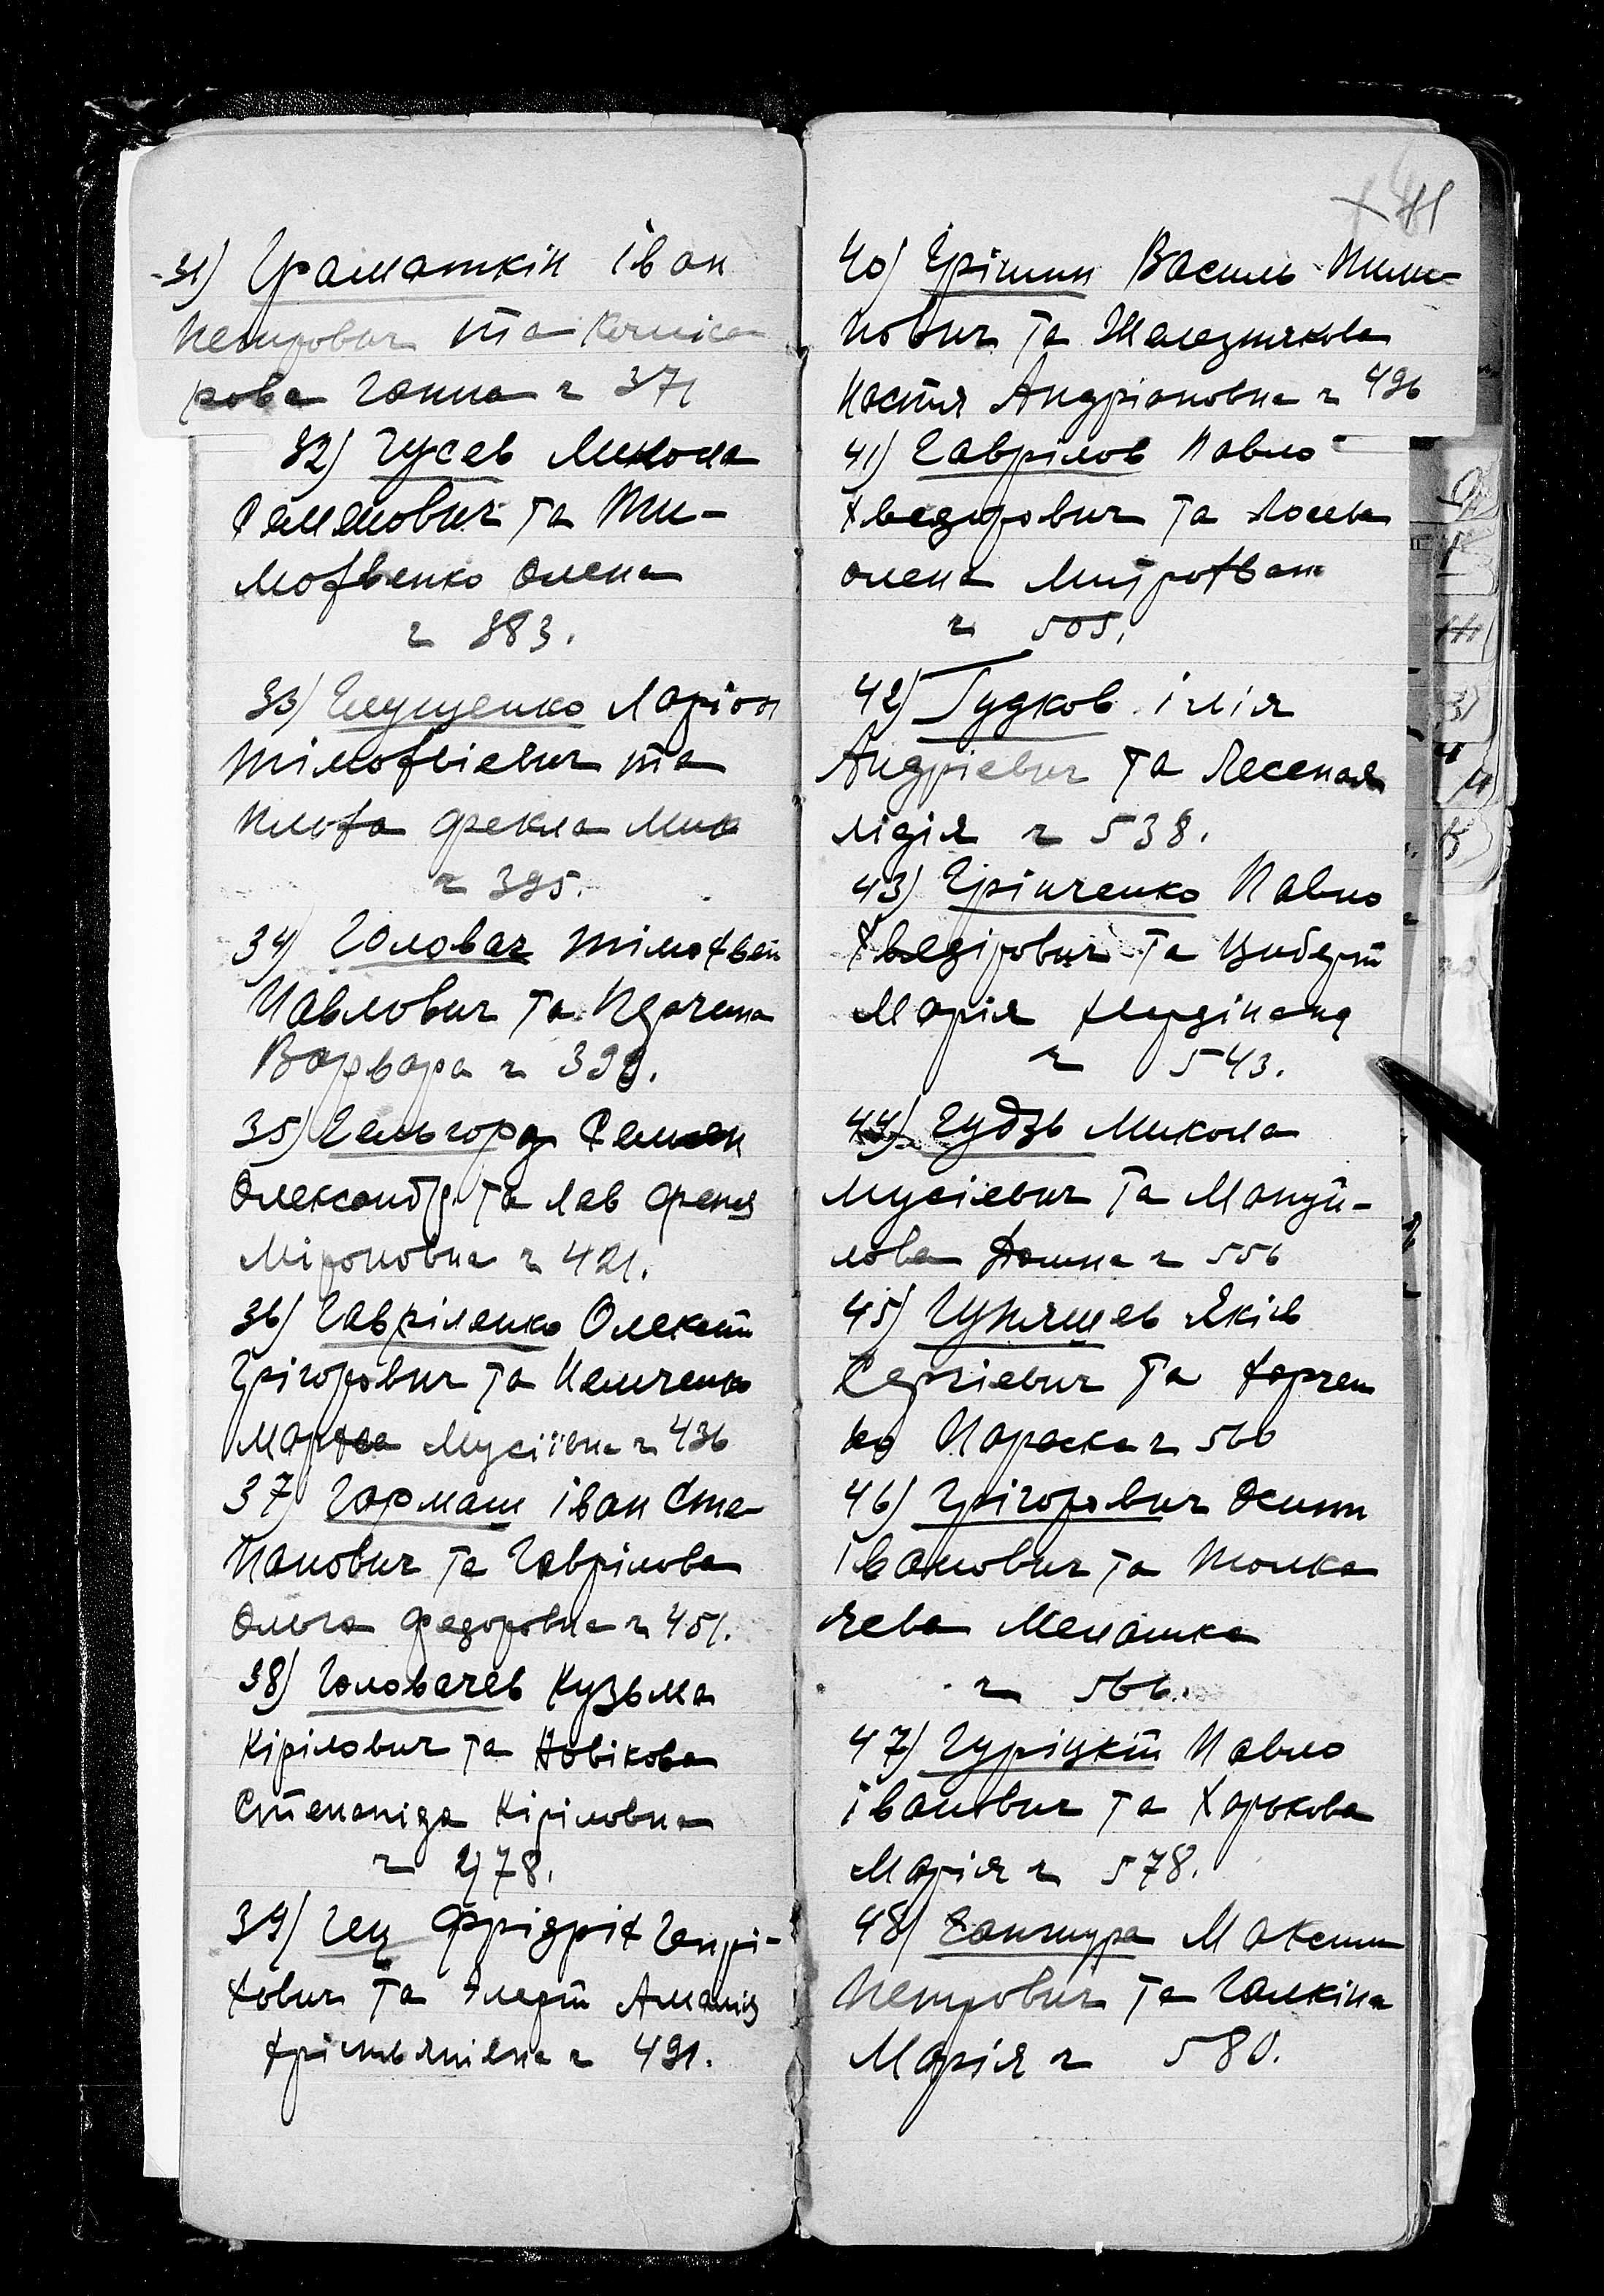 31) Граматкін Іван
Петрович та Комиса
рова Ганна ч 371
32) Гусев Микола
Семенович та Ти-
мофвенко Олена
ч 383.
33) Глущенко Ларіон
Тімофвієвич та
Плота Фекла Мик
ч 395.
34) Головач Тімохвей
Павлович та
Варвара ч 399.
35) Гельгорд Семен
Олександр. та Лев Феня
Міроновна ч 421.
36) Гавріленко Олексій
Грігорович та Немченко
Марфа Мусіївна ч 436
37) Гармаш Іван Сте-
панович та Гаврілова
Ольга Федоровна ч 451.
38) Головачев Кузьма
Кірілович та Новікова
Степаніда Кіріловна
ч 478.
39) Гец Фрідріх Генрі-
хович та Элерт Амалія
Хрістьянівна ч 491.
41
40) Грішин Василь Пили-
пович та Железнякова
Настя Андріановна ч 496
41) Гаврілов Павло
Хведорович та Лосева
Олена Митрохван
ч 505.
42) Гудков Ілія
Андрієвич та Лесеная
Лідія ч 538.
43) Грінченко Павло
Хведірович та Циберт
Марія Хердінанд
ч 543.
44) Гудзь Микола
Мусієвич та Мануй-
лова Домна ч 556
45) Гуплящев Яків
Сергієвич та Харчен
ко Параска ч 560
46) Грігорович Осип
Іванович та Толка
чева Меланка
ч 566.
47) Гуріцкий Павло
Іванович та Харькова
Марія ч 578.
48) Гантура Максим
Петрович та Галкіна
Марія ч 580.